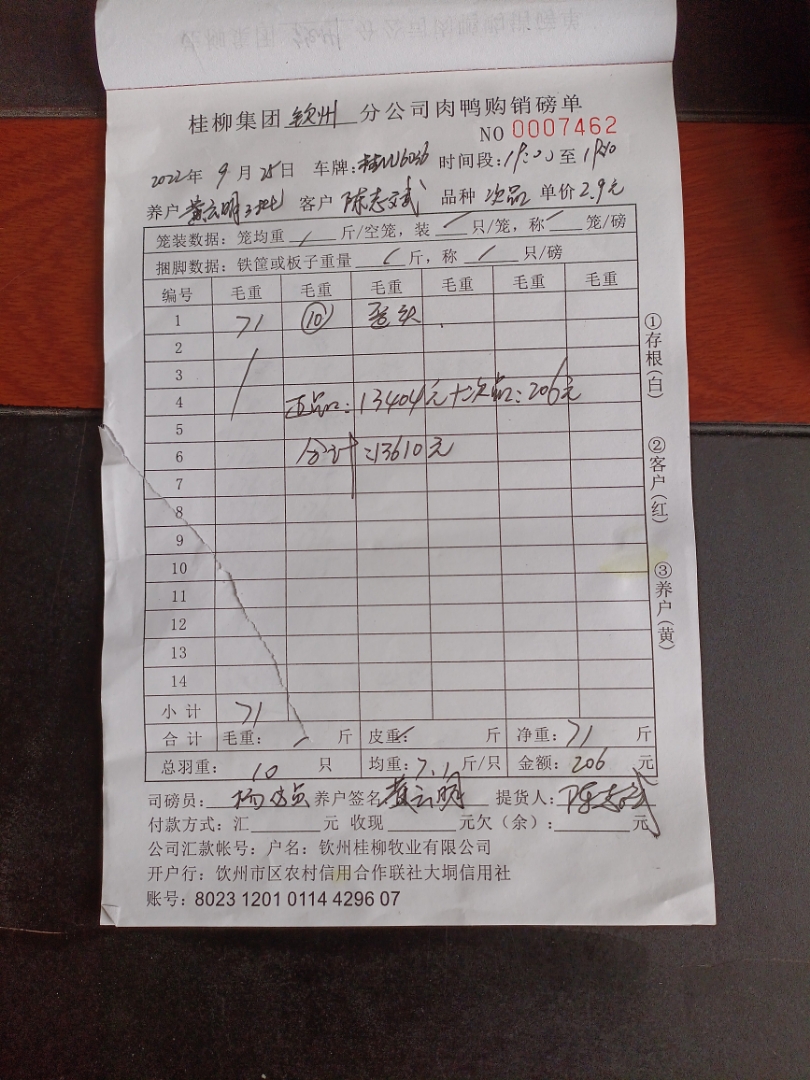 桂柳集团 钦州 分公司肉鸭购销磅单
NO 0007462
2022年 9月 25日 车牌: 时间段:19:00至
养户 黄云明 客户 陈志斌 品种 次品 单价 2.9元
笼装数据:笼均重 / 斤/空笼,装 / 只/笼,称 / 笼/磅
捆脚数据:铁筐或板子重量 / 斤,称 / 只/磅
编号 毛重 毛重 毛重 毛重 毛重 毛重
1 71 ⑩
2
3
4 正品:13404元+次品:206元
5
6 合计:13610元
7
8
9
10
11
12
13
14
小计 71
合计 毛重: / 斤 皮重:/ 斤 净重:71 斤
总羽重: 10 只 均重:7.1斤/只 金额:206 元
司磅员: 养户签名 黄云明 提货人:陈志斌
付款方式:汇 元 收现 元欠(余): 元
公司汇款帐号:户名:钦州桂柳牧业有限公司
开户行:钦州市区农村信用合作联社大垌信用社
账号:8023 1201 0114 4296 07
①存根(白)
②客户(红)
③养户(黄)